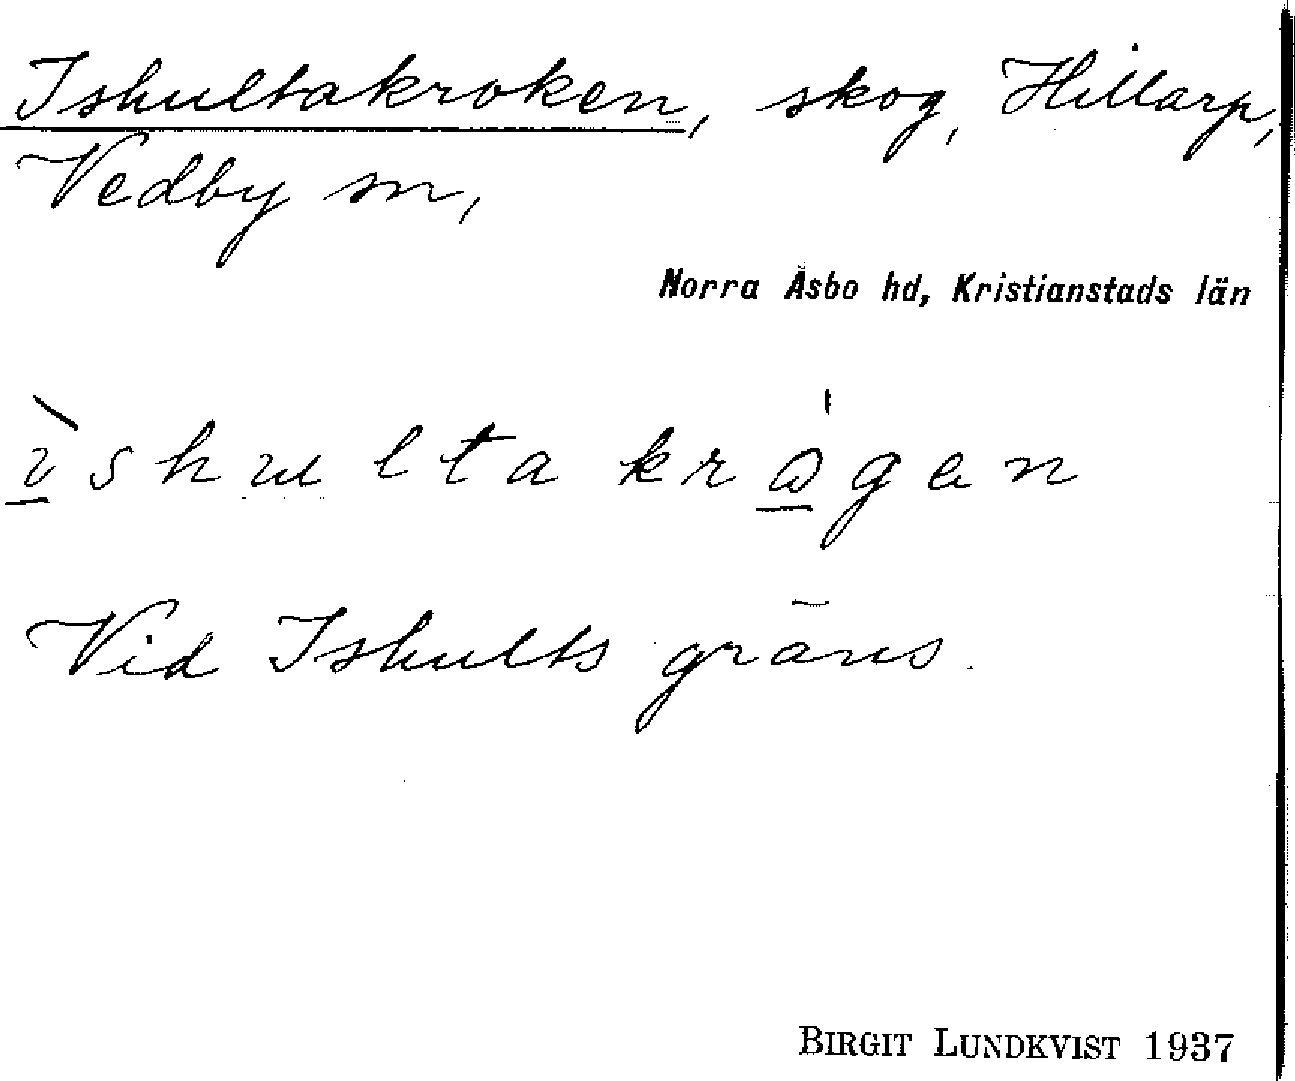 Ishultakroken, skog, Hillarp,
Vedby sn,
Norra Åsbo hd, Kristianstads län
ìshultakrågen
Vid Ishults gräns.
BIRGIT LUNDKVIST 1937